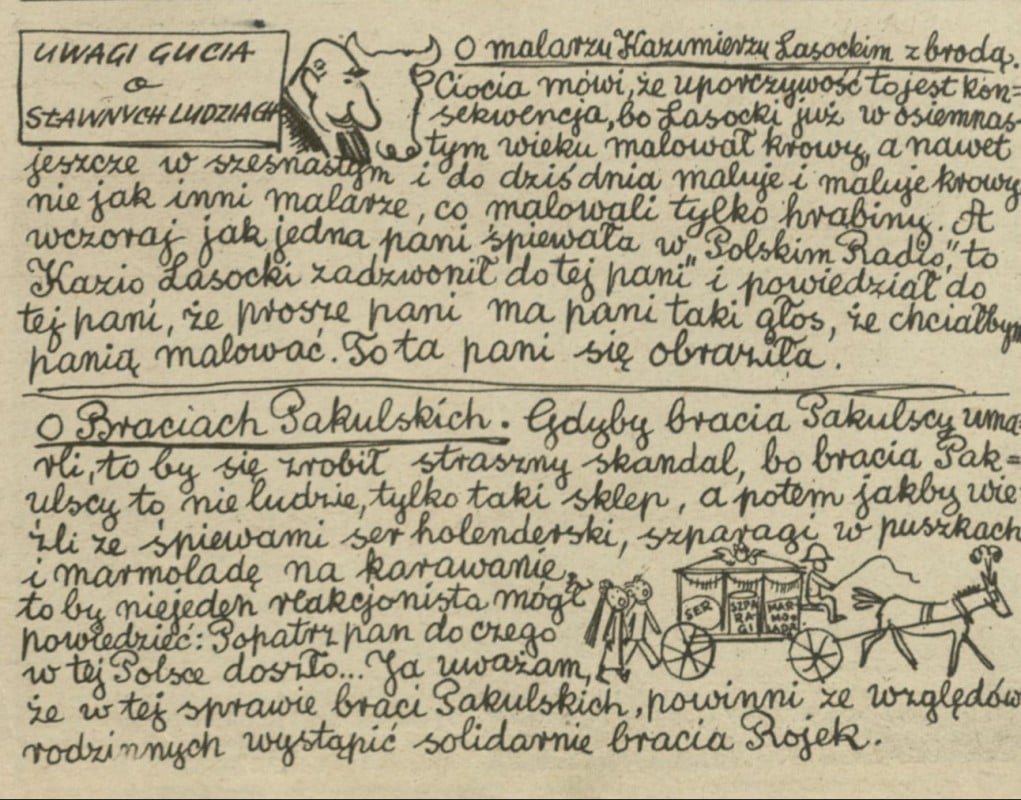 UWAGI GUCIA
o
SŁAWNYCH LUDZIACH
O malarzu Kazimierzu Lasockim z brodą.
Ciocia mówi, że uporczywość to jest kon=
sekwencja, bo Lasocki już w osiemnas-
tym wieku malował krowy, a nawet
jeszcze w szesnastym i do dziś dnia maluje i maluje krowy
nie jak inni malarze, co malowali tylko hrabiny. A
wczoraj jak jedna pani śpiewała w „Polskim Radio", to
Kazio Lasocki zadzwonił do tej pani" i powiedział do
tej pani, że prosze pani ma pani taki głos, że chciałbym
panią malować. To ta pani się obraziła.
O Braciach Pakulskich. Gdyby bracia Pakulscy uma-
rli, to by się zrobił straszny skandal, bo bracia Pak=
ulscy to nie ludzie, tylko taki sklep, a potem jakby wie-
źli ze śpiewami ser holenderski, szparagi w puszkach
i marmoladę na karawanie,
to by niejeden reakcjonista mógł
powiedzieć: Popatrz pan do czego
w tej Polsce doszło... Ja uważam,
że w tej sprawie braci Pakulskich, powinni ze względów
rodzinnych wystąpić solidarnie bracia Rojek.
SER
SZPA
RA=
GI
MAR=
MO=
LADA